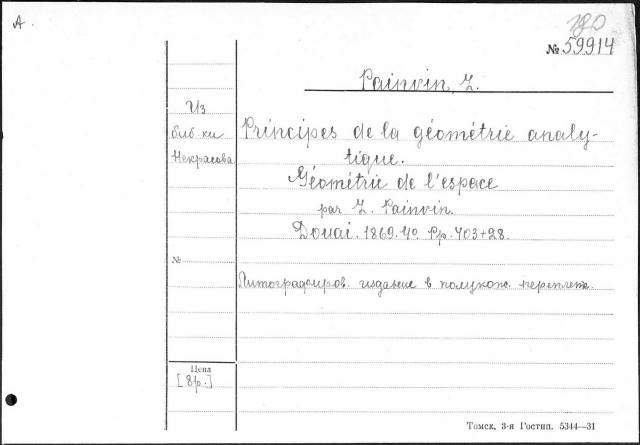 А.
190
№ 59914
Painvin, L.
Из
биб-ки
Некрасова
Principes de la géométrie analy-
tique.
Géométrie de l'espace
par L. Painvin.
Douai. 1869. 4°. Pp. 703+28.
№
Литографиров. издание в полукож. переплете.
Цена
[8р.]
Томск, 3-я Гостип. 5344—31